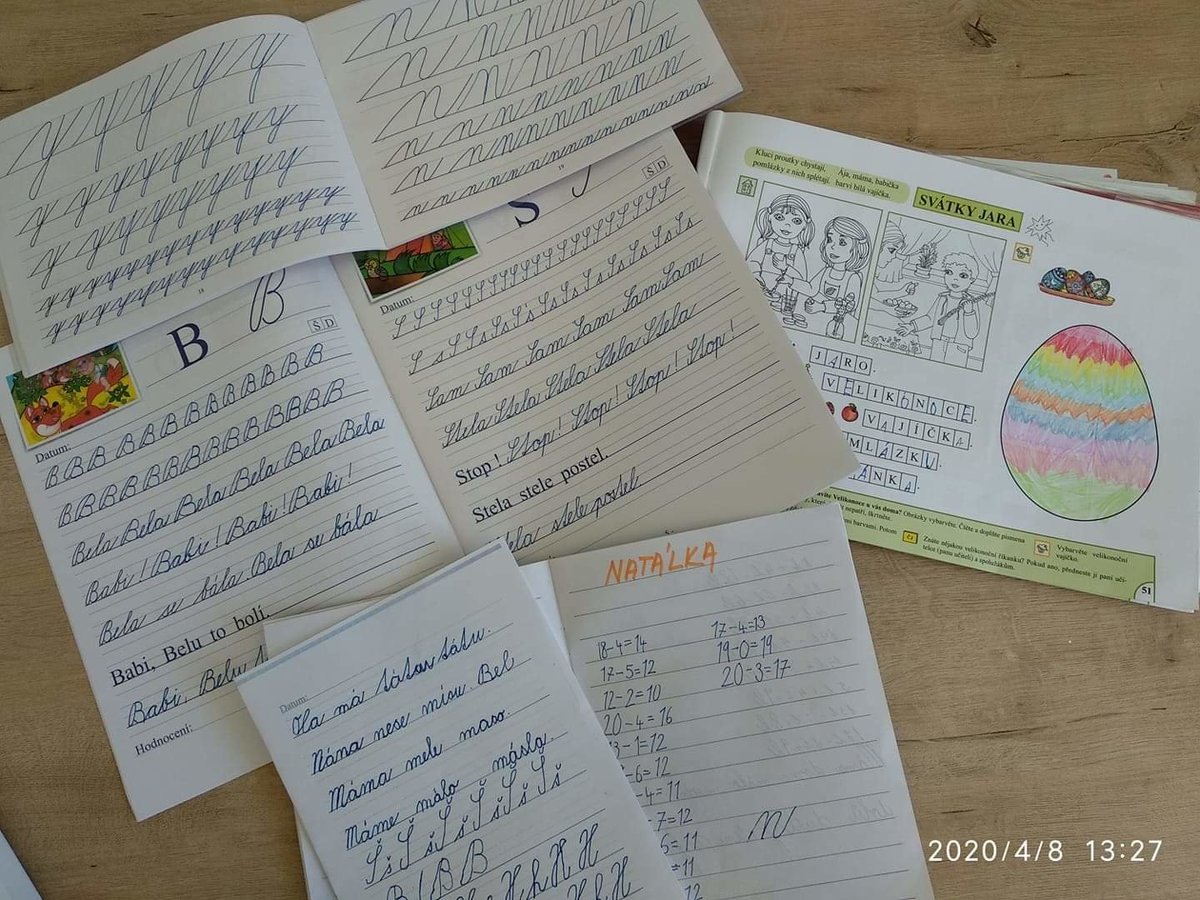 18
19
B B
Š D
Datum:
B B B B B B B B B B B
B B B B B B B B B B B B
Bela Bela Bela Bela Bela Bela
Babi! Babi! Babi! Babi!
Bela se bála Bela se bála
Babi, Belu to bolí.
Babi, Belu
Hodnocení:
S
Š D
Datum:
S s S s S s S s S s S s S s S s
Sam Sam Sam Sam Sam Sam
Stela Stela Stela Stela Stela
Stop! Stop! Stop! Stop! Stop!
Stela stele postel.
stele postel
Kluci proutky chystají,
pomlázky z nich splétají.
Ája, máma, babička
barví bílá vajíčka.
SVÁTKY JARA
JARO.
VELIKONOCE.
VAJÍČKA
MLÁZKU.
ÁNKA.
Velikonoce u vás doma? Obrázky vybarvěte. Čtěte a doplňte písmena
nepatří, škrtněte.
barvami. Potom
Znáte nějakou velikonoční říkanku? Pokud ano, předneste ji paní uči-
telce (panu učiteli) a spolužákům.
Vybarvěte velikonoční
vajíčko.
51
Datum:
Ola má tátu.
Nána nese mísu. Bel
Máma mele maso.
Máme málo másla.
Š š Š š Š š Š š Š š Š š
B B B
H h H H
NATÁLKA
18-4=14
17-5=12
12-2=10
20-4=16
3-1=12
-6=12
-4=11
-7=12
6=11
=11
12
17-4=13
19-0=19
20-3=17
2020/4/8 13:27